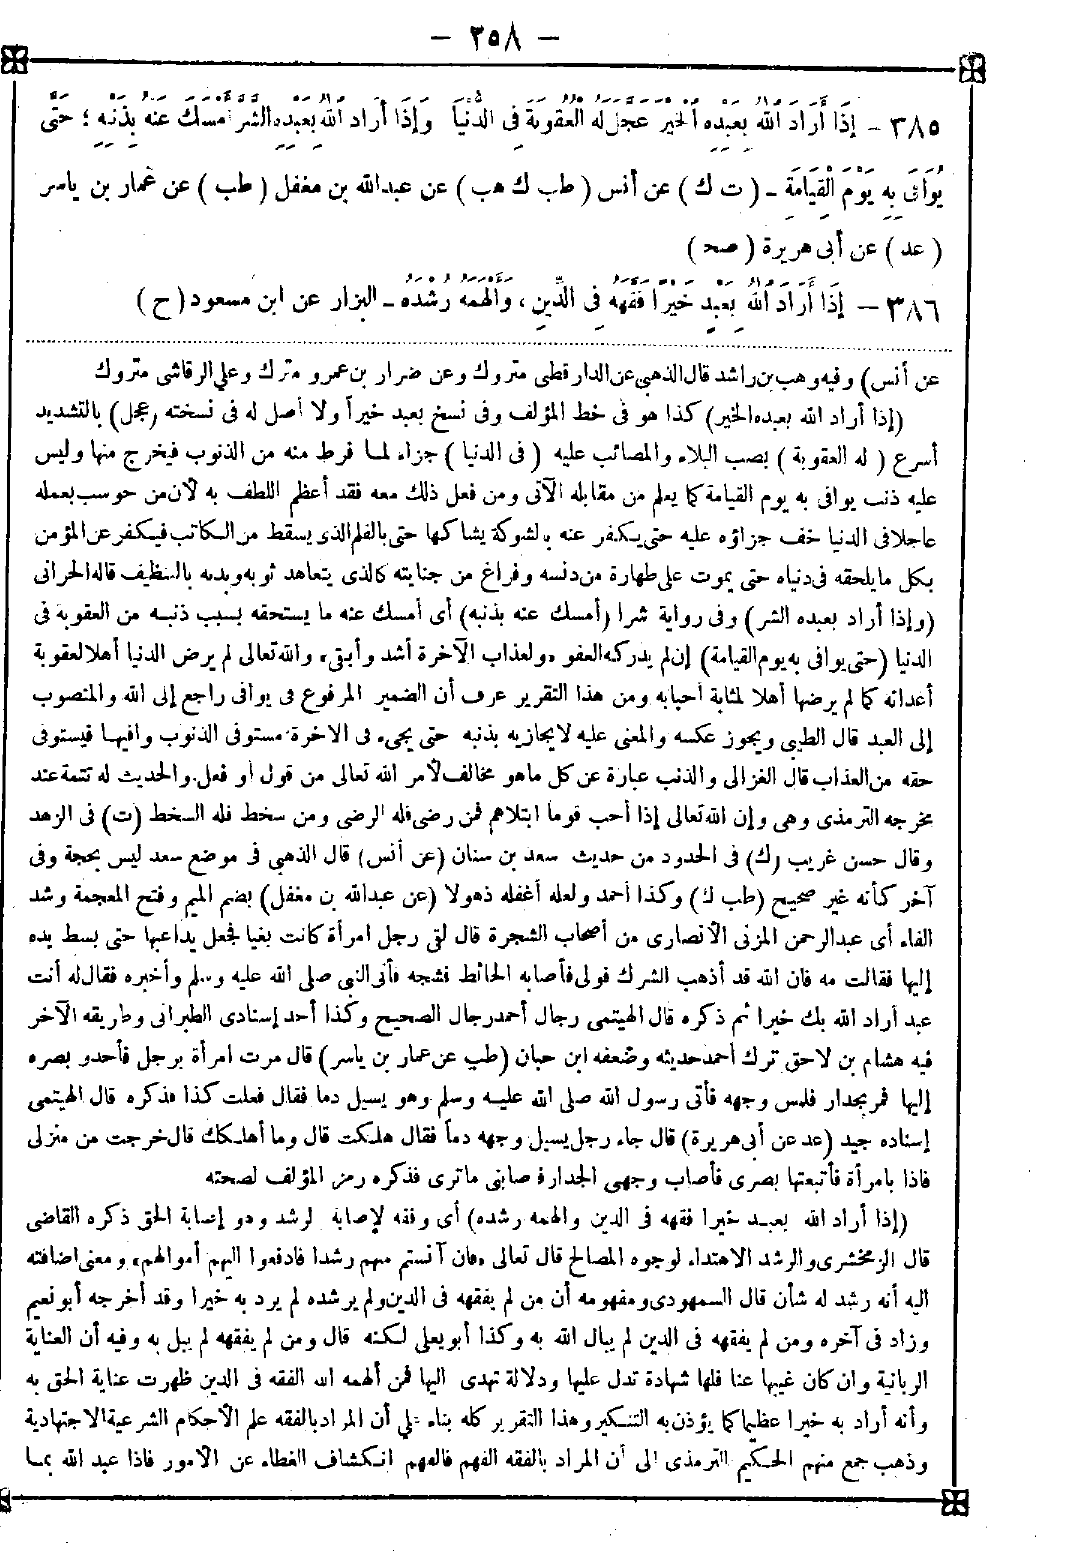 — ٢٥٨ —
٣٨٥ - إِذَا أَرَادَ اللهُ بِعَبْدِهِ الْخَيْرَ عَجَّلَ لَهُ الْعُقُوبَةَ فِي الدُّنْيَا وَإِذَا أَرَادَ اللهُ بِعَبْدِهِ الشَّرَّ أَمْسَكَ عَنْهُ بِذَنْبِهِ ؛ حَتَّى
يُوَافَى بِهِ يَوْمَ الْقِيَامَةِ - ( ت ك ) عن أنس ( طب ك هب ) عن عبدالله بن مغفل ( طب ) عن عمار بن ياسر
( عد ) عن أبى هريرة ( صح )
٣٨٦ - إِذَا أَرَادَ اللهُ بِعَبْدٍ خَيْرًا فَقَّهَهُ فِي الدِّينِ ، وَأَلْهَمَهُ رُشْدَهُ - البزار عن ابن مسعود ( ح )
عن أنس) وفيه وهب بن راشد قال الذهبي عن الدارقطى متروك وعن ضرار بن عمرو مترك وعلى الرقاشى متروك
(إذا أراد الله بعبده الخير) كذا هو فى خط المؤلف وفى نسخ بعبد خيراً ولا أصل له فى نسخته (عجل) بالتشديد
أسرع ( له العقوبة ) بصب البلاء والمصائب عليه ( فى الدنيا ) جزاء لما فرط منه من الذنوب فيخرج منها وليس
عليه ذنب يوافى به يوم القيامة كما يعلم من مقابله الآتى ومن فعل ذلك معه فقد أعظم اللطف به لأن من حوسب بعمله
عاجلا فى الدنيا خف جزاؤه عليه حتى يكفر عنه بالشوكة يشاكها حتى بالقلم الذى يسقط من الكاتب فيكفر عن المؤمن
بكل ما يلحقه فى دنياه حتى يموت على طهارة من دنسه وفراغ من جنايته كالذى يتعاهد ثوبه وبدنه بالتنظيف قاله الحرانى
(وإذا أراد بعبده الشر) وفى رواية شرا (أمسك عنه بذنبه) أى أمسك عنه ما يستحقه بسبب ذنبه من العقوبة فى
الدنيا (حتى يوافى به يوم القيامة) إن لم يدركه العفو «ولعذاب الآخرة أشد وأبقى» والله تعالى لم يرض الدنيا أهلا لعقوبة
أعدائه كما لم يرضها أهلا لمثابة أحبابه ومن هذا التقرير عرف أن الضمير المرفوع فى يوافى راجع إلى الله والمنصوب
إلى العبد قال الطيبى ويجوز عكسه والمعنى عليه لا يجازيه بذنبه حتى يجىء فى الآخرة مستوفى الذنوب وافيها فيستوفى
حقه من العذاب قال الغزالى والذنب عبارة عن كل ما هو مخالف لأمر الله تعالى من قول أو فعل. والحديث له تتمة عند
مخرجه الترمذى وهى وإن الله تعالى إذا أحب قوما ابتلاهم فمن رضى فله الرضى ومن سخط فله السخط (ت) فى الزهد
وقال حسن غريب (ك) فى الحدود من حديث سعد بن سنان (عن أنس) قال الذهبى فى موضع سعد ليس بحجة وفى
آخر كأنه غير صحيح (طب ك) وكذا أحمد ولعله أغفله ذهولا (عن عبدالله بن مغفل) بضم الميم وفتح المعجمة وشد
الفاء أى عبدالرحمن المزنى الأنصارى من أصحاب الشجرة قال لقى رجل امرأة كانت بغيا فجعل يداعبها حتى بسط يده
إليها فقالت مه فان الله قد أذهب الشرك فولى فأصابه الحائط فشجه فأتى النبى صلى الله عليه وسلم وأخبره فقال له أنت
عبد أراد الله بك خيرا ثم ذكره قال الهيتمى رجال أحمد رجال الصحيح وكذا أحد إسنادى الطبرانى وطريقه الآخر
فيه هشام بن لاحق ترك أحمد حديثه وضعفه ابن حبان (طب عن عمار بن ياسر) قال مرت امرأة برجل فأحد بصره
إليها فمر بجدار فلمس وجهه فأتى رسول الله صلى الله عليه وسلم وهو يسيل دما فقال فعلت كذا فذكره قال الهيتمى
إسناده جيد (عد عن أبى هريرة) قال جاء رجل يسيل وجهه دماً فقال هلكت قال وما أهلكك قال خرجت من منزلى
فاذا بامرأة فأتبعتها بصرى فأصاب وجهى الجدار فأصابنى ما ترى فذكره رمز المؤلف لصحته
(إذا أراد الله بعبد خيرا فقهه فى الدين وألهمه رشده) أى وفقه لإصابة الرشد وهو إصابة الحق ذكره القاضى
قال الزمخشرى والرشد الاهتداء لوجوه المصالح قال تعالى «فان آنستم منهم رشدا فادفعوا اليهم أموالهم» ومعنى اضافته
اليه أنه رشد له شأن قال السمهودى ومفهومه أن من لم يفقهه فى الدين ولم يرشده لم يرد به خيرا وقد أخرجه أبو نعيم
وزاد فى آخره ومن لم يفقهه فى الدين لم يبال الله به وكذا أبو يعلى لكنه قال ومن لم يفقهه لم يبل به وفيه أن العناية
الربانية وان كان غيبها عنا فلها شهادة تدل عليها ودلالة تهدى اليها فمن ألهمه الله الفقه فى الدين ظهرت عناية الحق به
وأنه أراد به خيرا عظيما كما يؤذن به التنكير وهذا التقرير كله بناء على أن المراد بالفقه علم الأحكام الشرعية الاجتهادية
وذهب جمع منهم الحكيم الترمذى الى أن المراد بالفقه الفهم فالفهم انكشاف الغطاء عن الأمور فاذا عبد الله بما